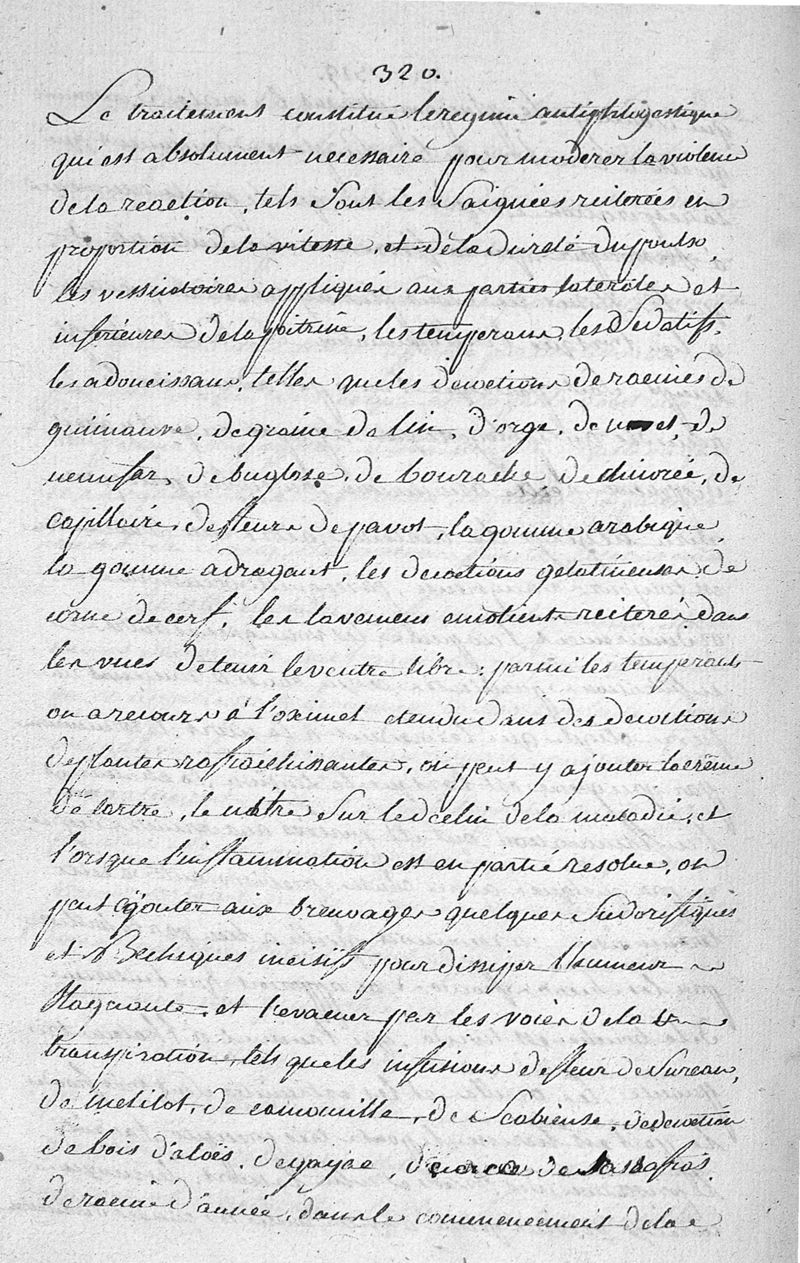 320.
Le traitement constitue le regime antiphlogistique
qui est absolument necessaire pour moderer la violence
de la reaction, tels sont les saignées reiterées en
proportion de la vitesse, et de la dureté du pouls,
les vessicatoires appliqués aux parties laterales et
inferieures de la poitrine, les temperans, les sedatifs,
les adoucissans, telles que les decoctions de racines de
guimauve, de graine de lin, d'orge, de et de
nenufar, de buglose, de bourache de chicorée, de
capillaire, de fleurs de pavot, la gomme arabique,
la gomme adragant, les decoctions gelatineuses de
corne de cerf, les lavemens emolients reiterés dans
les vues de tenir le ventre libre: parmi les temperants
on a recours à l'oximel etendu dans des decoctions
de plantes rafraichissantes, on peut y ajouter la crême
de tartre, le nitre sur le declin de la maladie, et
lorsque l'inflammation est en partie resolue, on
peut ajouter aux breuvages quelques sudorifiques
et Bechiques incisifs pour dissiper l'humeur
stagnante, et l'evacuer par les voies de la
transpiration, tels que les infusions de fleur de sureau,
de melilot, de camomille, de scabieuse, de decoction
de bois d'aloës, de gayac, de sassafras,
de racine d'aunée, dans le commencement de la